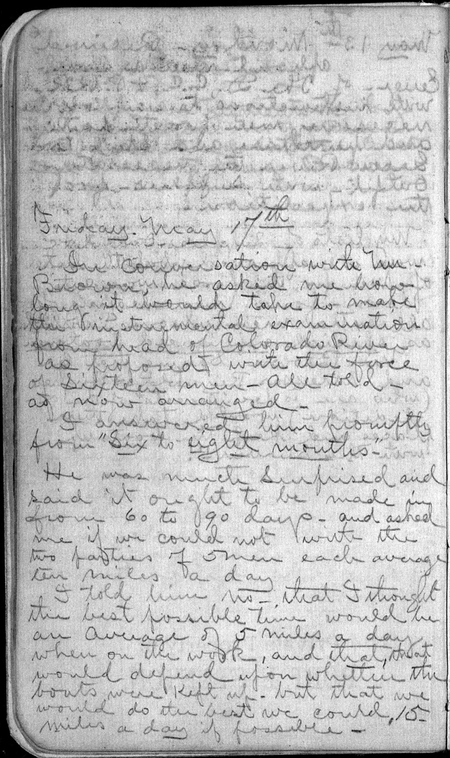 Friday. May 17th
In conversation with Mr.
Brown, he asked me how
long it would take to make
the Instrumental examination
from head of Colorado River
as proposed with the force
of Sixteen men - all told -
as now arranged -
I answered him promptly
from "Six to eight months."
He was much Surprised and
said it ought to be made in
from 60 to 90 days - and asked
me if we could not with the
two parties of 5 men each average
ten miles a day
I told him no - that I thought
the best possible time would be
an average of 5 miles a day
when on the work, and that, that
would depend upon whether the
boats were kept up - but that we
would do the best we could, 15
miles a day if possible -